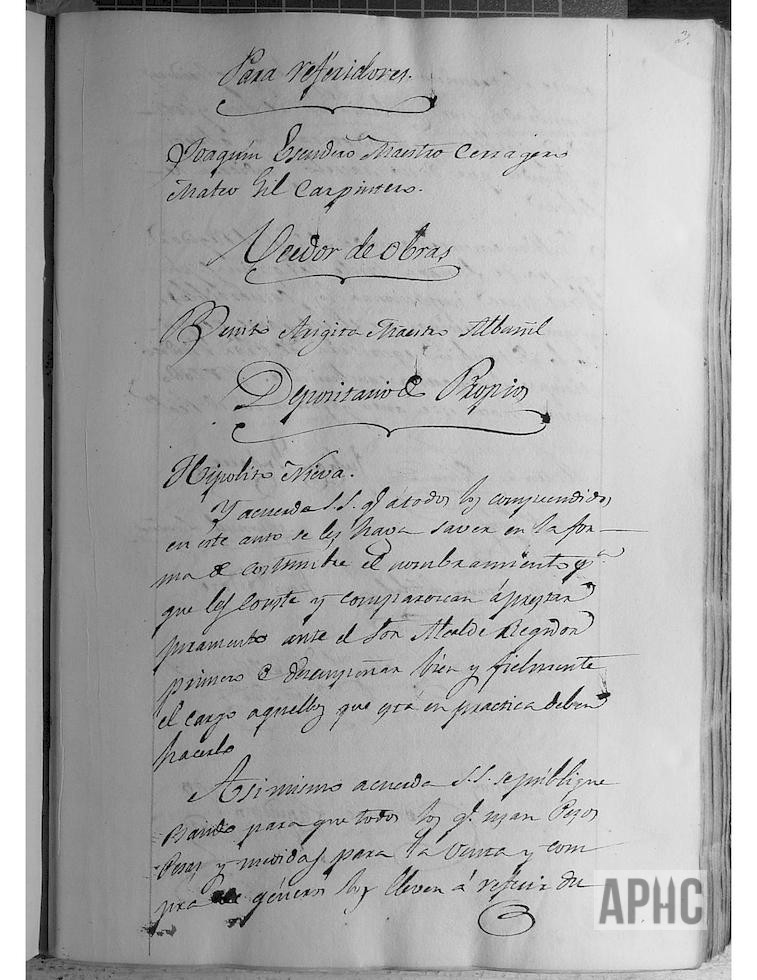 3.
Para referidores.
Joaquin Escudero Maestro Cerragero
Mateo Gil Carpintero.
Veedor de obras
Benito Arigita Maestro Albañil
Depositario de Propios
Hipolito Nieva.
Y acuerda S.S. qe. a todos los comprendidos
en este auto se les haga saver en la for-
ma de costumbre el nombramiento pa.
que les conste y comparezcan á prestar
juramento ante el Sor. Alcalde Regidor
primero de desempeñar bien y fielmente
el cargo aquellos que pra. en practica deben
hacerlo
Asimismo acuerda S.S. se públique
Bando para que todos los qe. usan Pesos
Pesas y medidas para la venta y com
pra de géneros los lleven á referir de
APHC